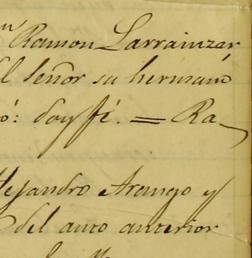 n Ramon Larrainzar,
l señor su hermano
ó: doy fé. = Ra-
lejandro Arango y
del auto anterior